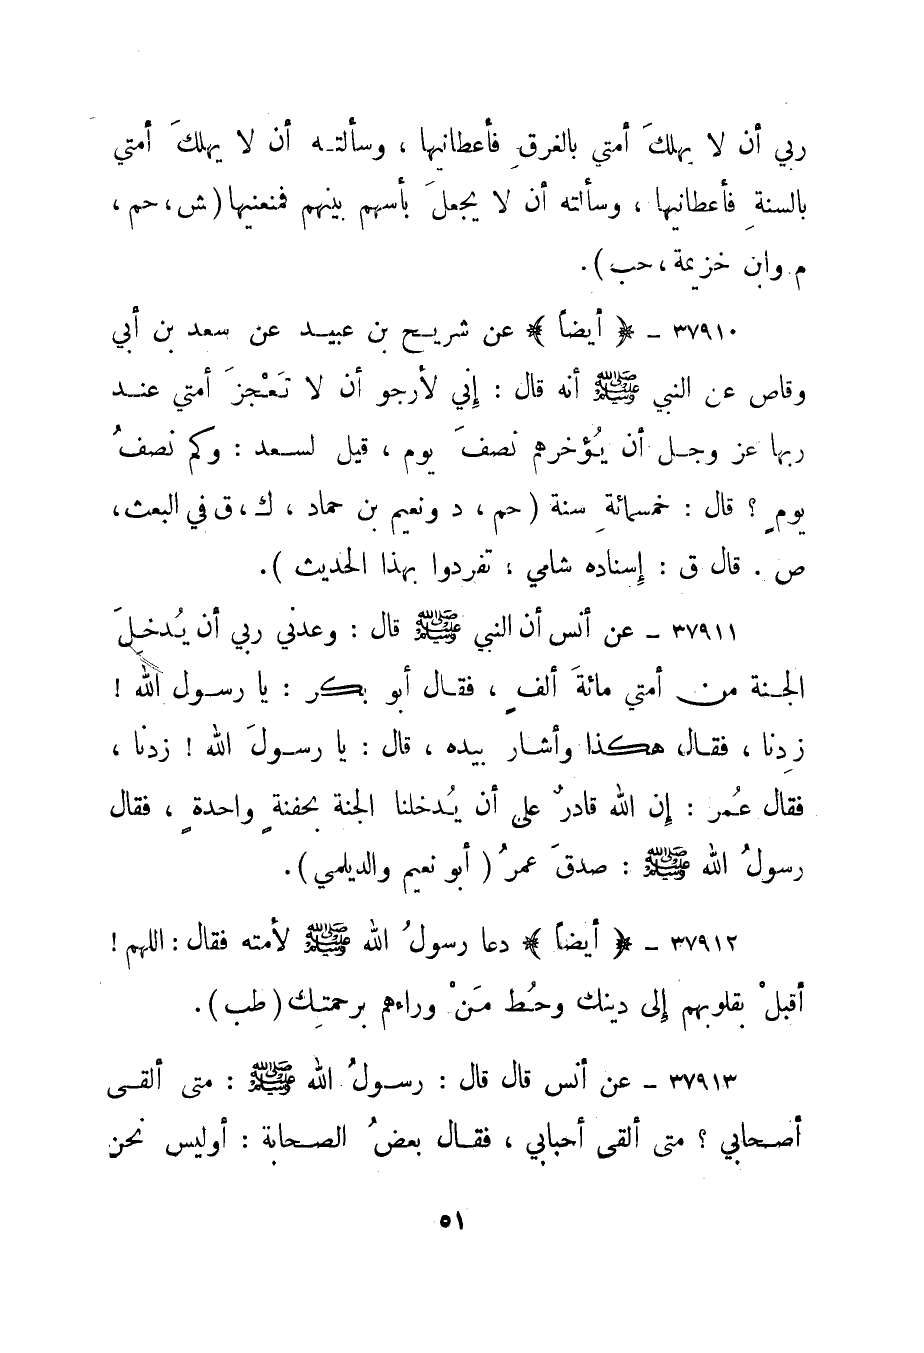 ربي أن لا يهلكَ أمتي بالغرقِ فأعطانيها ، وسألتـه أن لا يهلكَ أمتي
بالسنةِ فأعطانيها ، وسألته أن لا يجعلَ بأسهم بينهم فمنعنيها (ش ، حم ،
م وابن خزيمة ، حب ) .
٣٧٩١٠ ـ ﴿ أيضاً ﴾ عن شريـح بن عبيـد عن سعد بن أبي
وقاص عن النبي ﷺ أنه قال : إني لأرجو أن لا تَعْجزَ أمتي عنـد
ربها عز وجـل أن يُؤخرهم نصفَ يوم ، قيل لسـعد : وكم نصفُ
يومٍ ؟ قال : خمسمائةِ سنة ( حم ، د ونعيم بن حماد ، ك ، ق في البعث ،
ص . قال ق : إسناده شامي ، تفردوا بهذا الحديث ) .
٣٧٩١١ ـ عن أنس أن النبي ﷺ قال : وعدني ربي أن يُدخلَ
الجـنة من أمتي مائةَ ألفٍ ، فقـال أبو بكر : يا رسـول الله !
زِدنا ، فقـال هكذا وأشـار بيده ، قال : يا رسـولَ الله ! زدنا ،
فقال عُمر : إن الله قادرٌ على أن يُدخلنا الجنة بحفنةٍ واحدةٍ ، فقال
رسولُ الله ﷺ : صدقَ عمرُ ( أبو نعيم والديلمي ) .
٣٧٩١٢ ـ ﴿ أيضاً ﴾ دعا رسولُ الله ﷺ لأمته فقال : اللهم !
أقبلْ بقلوبهم إلى دينك وحُط مَنْ وراءهم برحمتِك ( طب ) .
٣٧٩١٣ ـ عن أنس قال قال : رسـولُ الله ﷺ : متى ألقـى
أصـحابي ؟ متى ألقى أحبابي ، فقـال بعضُ الصـحابة : أوليس نحن
٥١